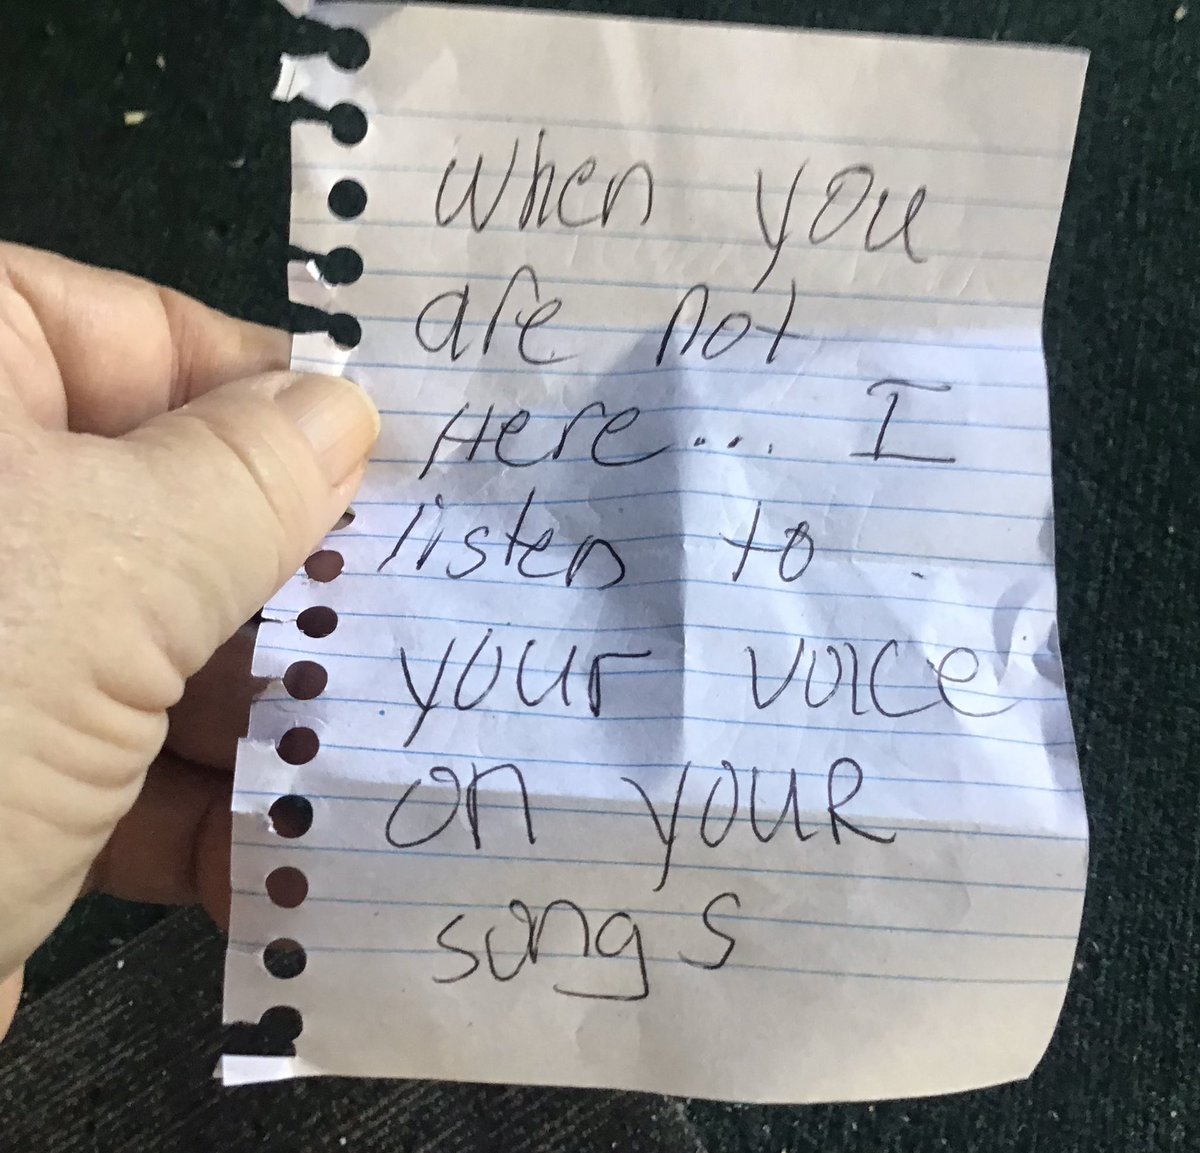 when you
are not
Here... I
listen to
your voice
on youR
songs